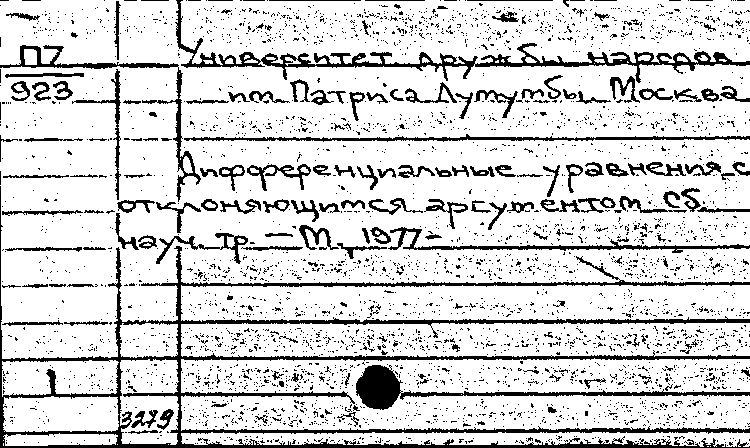 П7 Университет дружбы народов
923 им. Патриса Лумумбы. Москва
Дифференциальные уравнения с
отклоняющимся аргументом. Сб.
науч. тр. — М., 1977-
1
3279